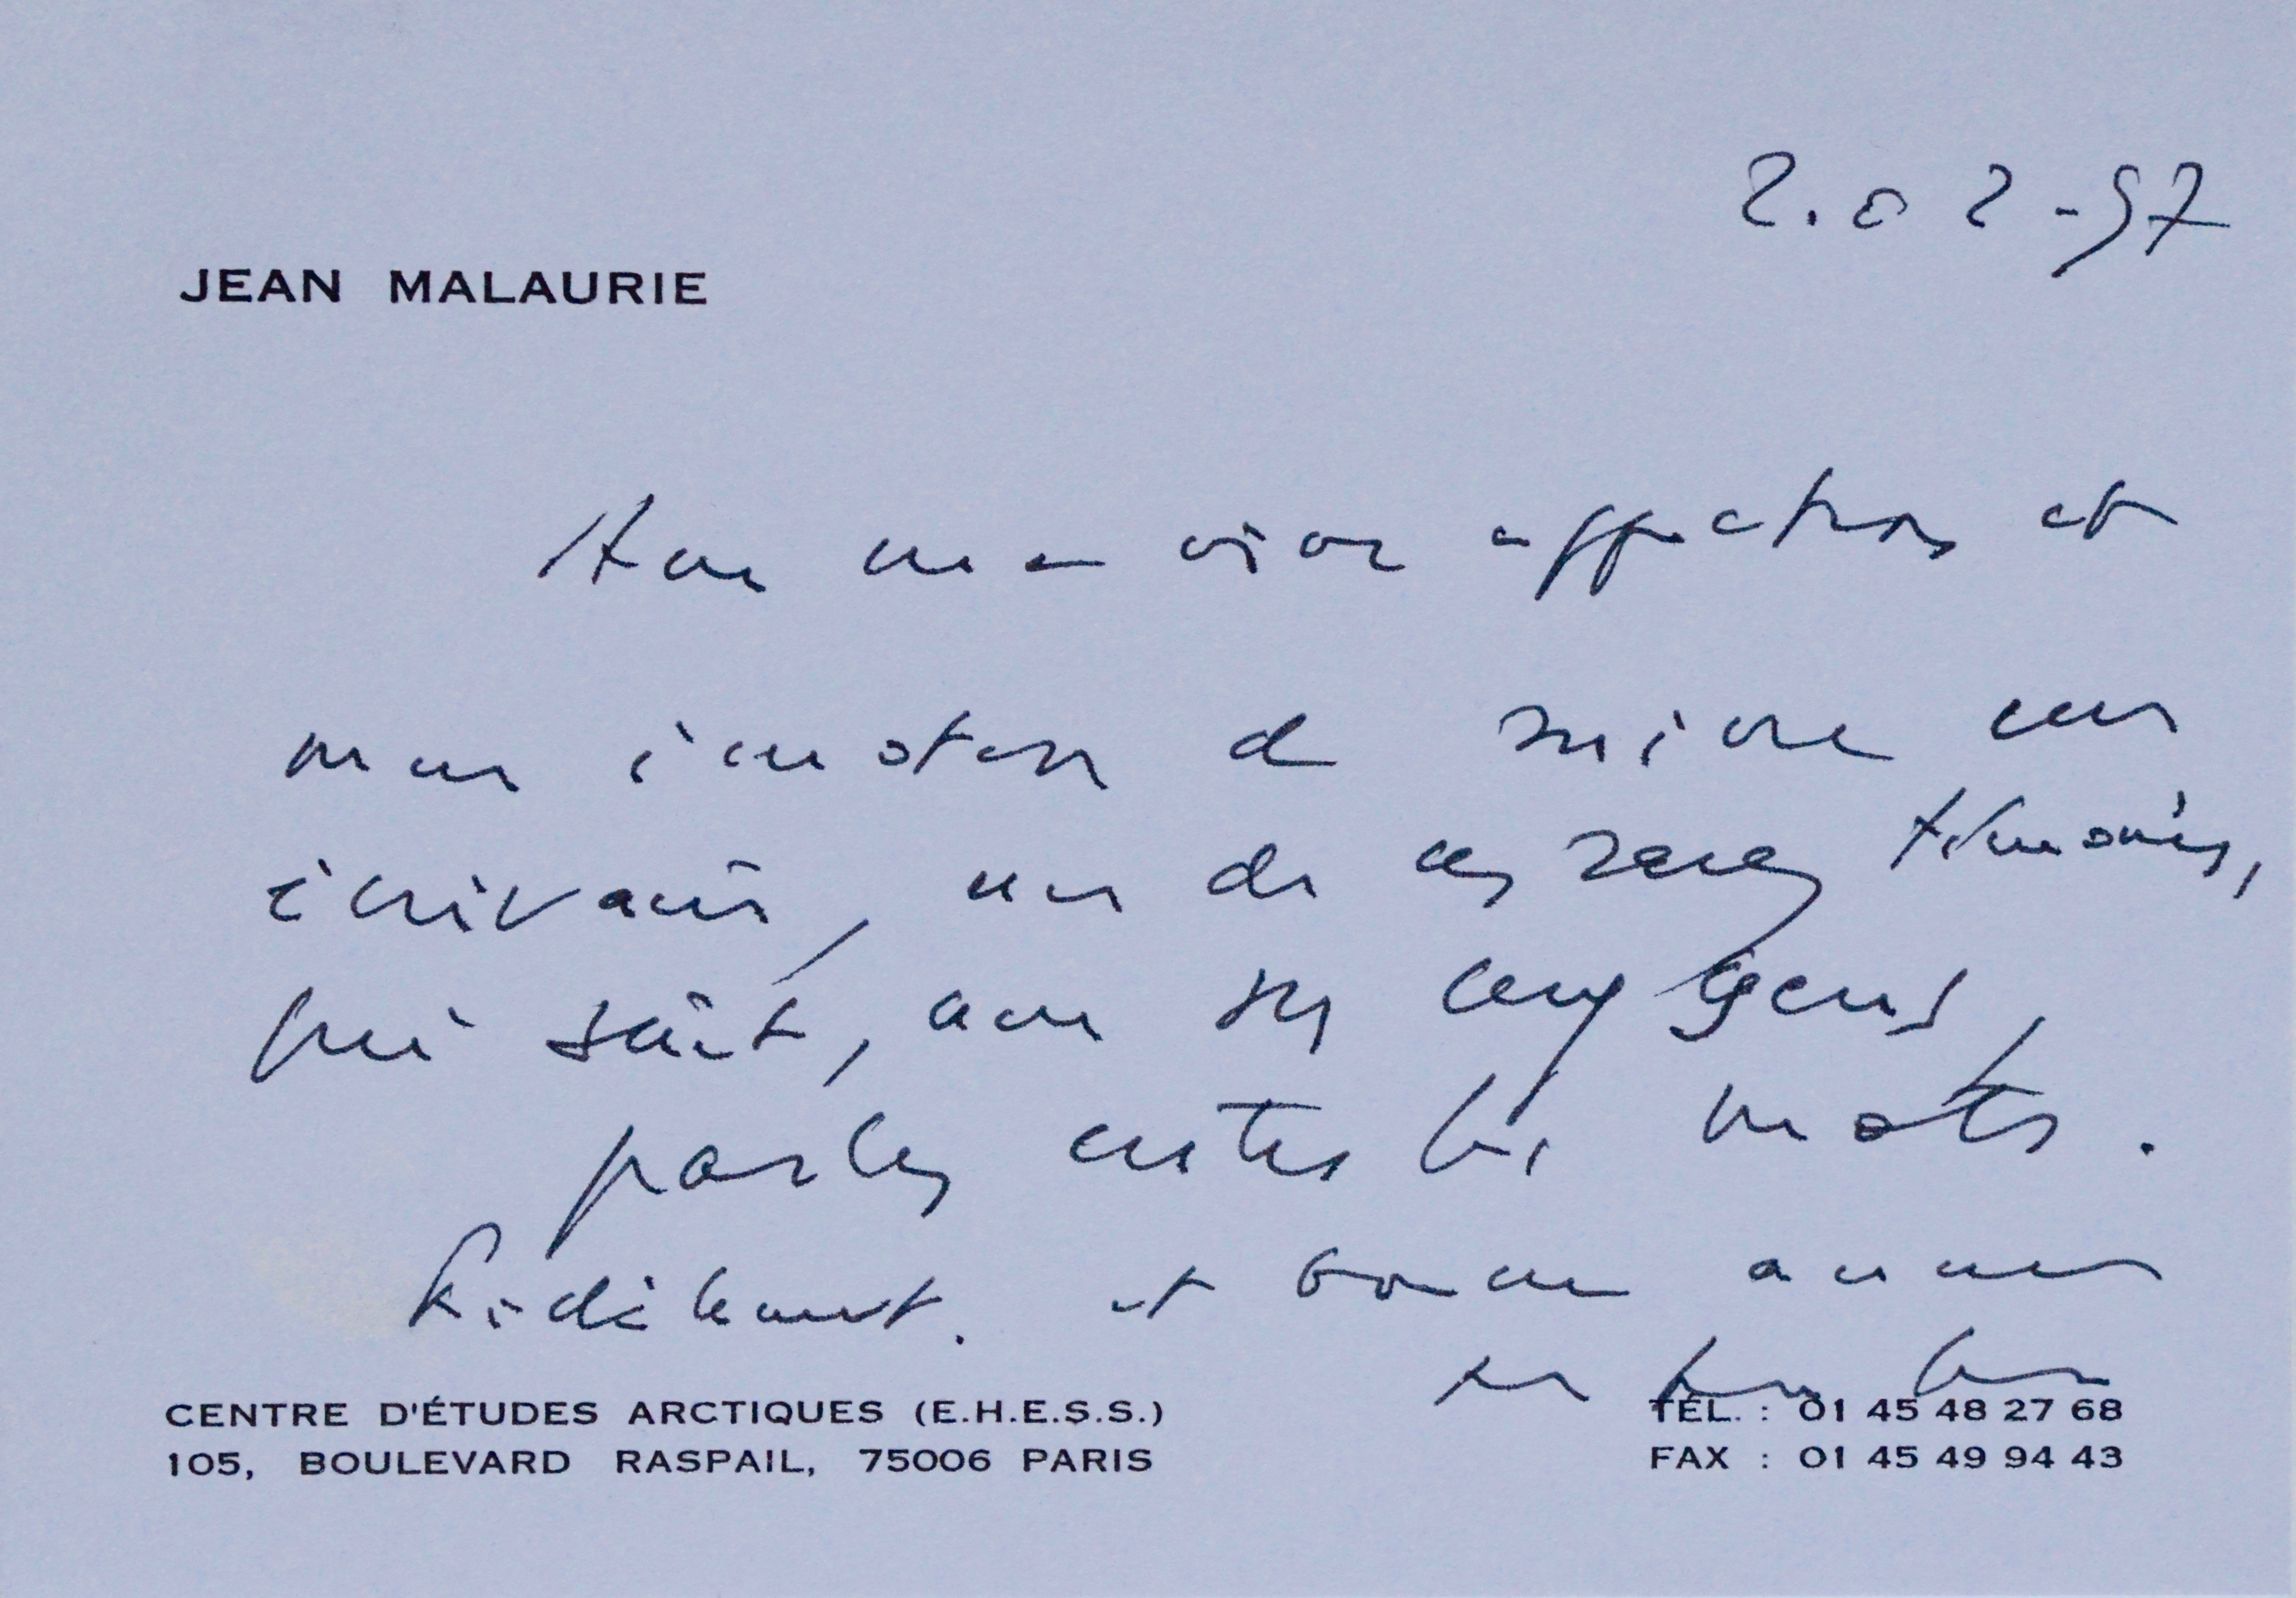 2.02-97
JEAN MALAURIE
Avec ma vive affection et
mon émotion de suivre un
écrivain, un de ces rares témoins,
qui sait, avec ses exigences,
parler entre les mots.
Fidèlement. et bonne année
CENTRE D'ÉTUDES ARCTIQUES (E.H.E.S.S.)
105, BOULEVARD RASPAIL, 75006 PARIS
TÉL. : 01 45 48 27 68
FAX : 01 45 49 94 43